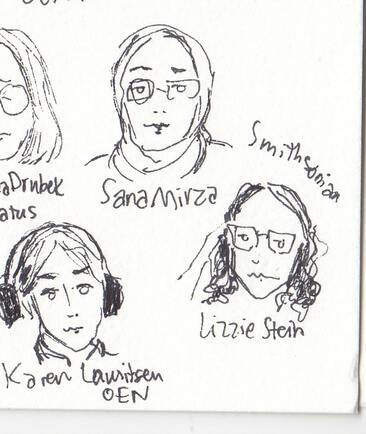 Drubek
Sana Mirza
Smithsonian
Lizzie Stein
Karen Lauritsen
OEN